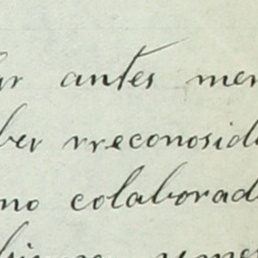 ar antes men
ber rreconosid
mo colaborad